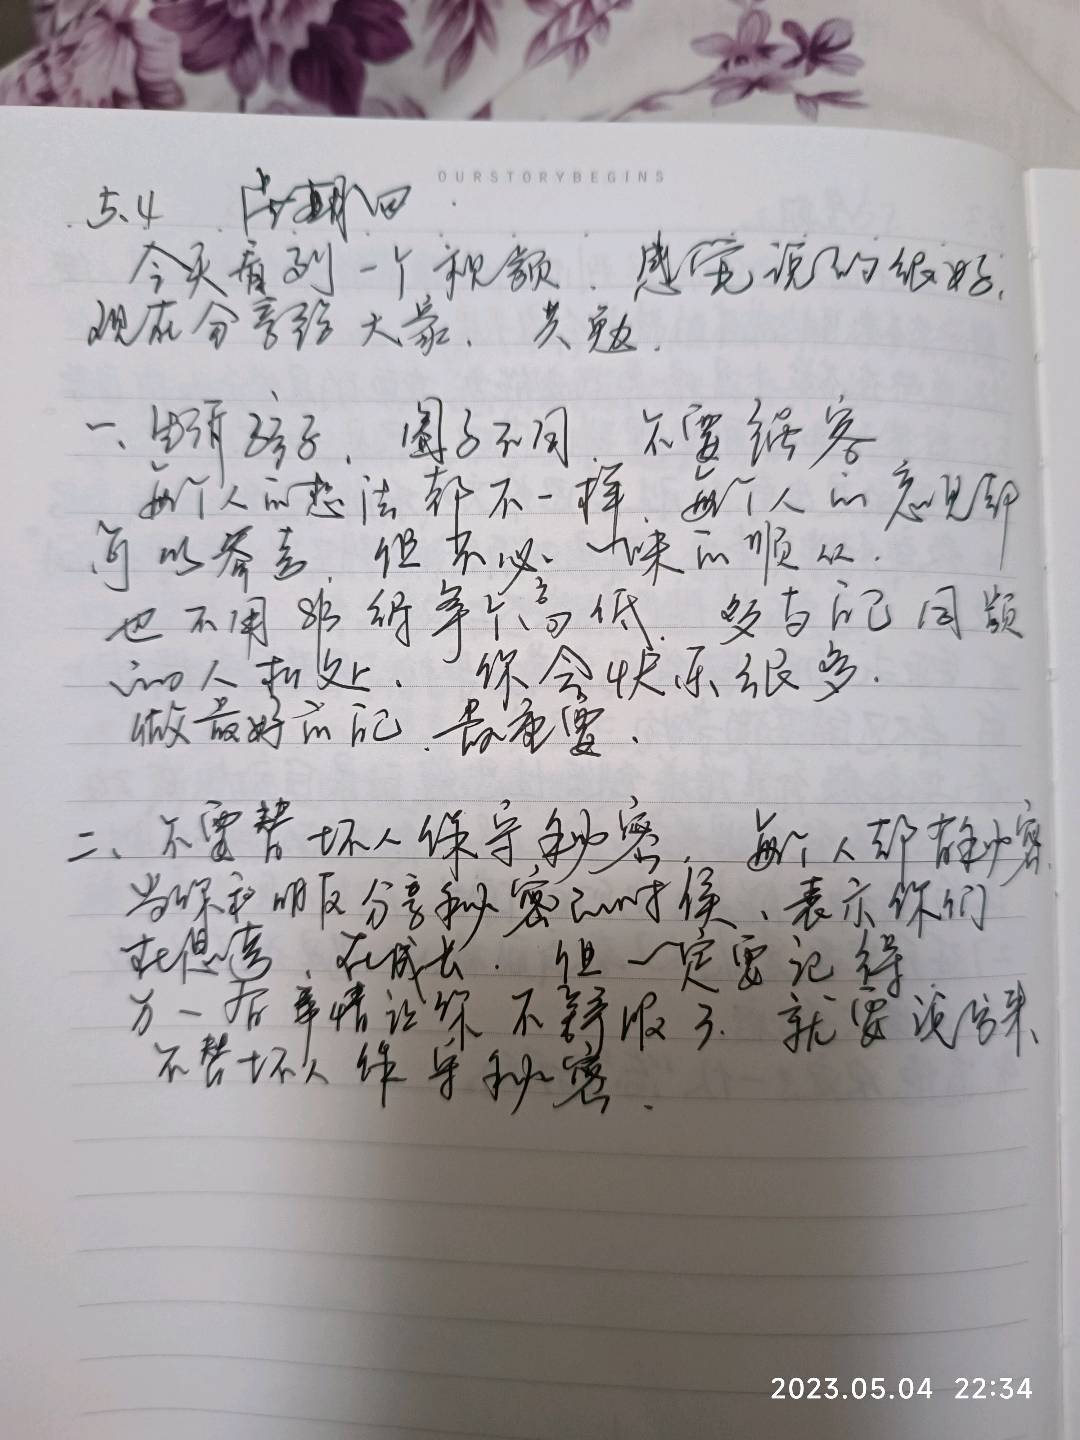 OURSTORYBEGINS
5.4 星期四
今天看到一个视频. 感觉说的很好.
现在分享给大家. 共勉.
一、 孩子, 圈子不同, 不要
每个人的想法都不一样. 每个人的意见都
可以参考, 但不必一味的顺从.
也不用非得争个高低. 多与自己同频
的人相处、 你会快乐很多.
做最好自己, 最重要.
二、不要替坏人保守秘密, 每个人都有秘密.
当你和朋友分享秘密的时候、表示你们
在 , 在成长. 但一定要记得
万一有事情让你不舒服了. 就要说出来
不替坏人保守秘密.
2023.05.04 22:34